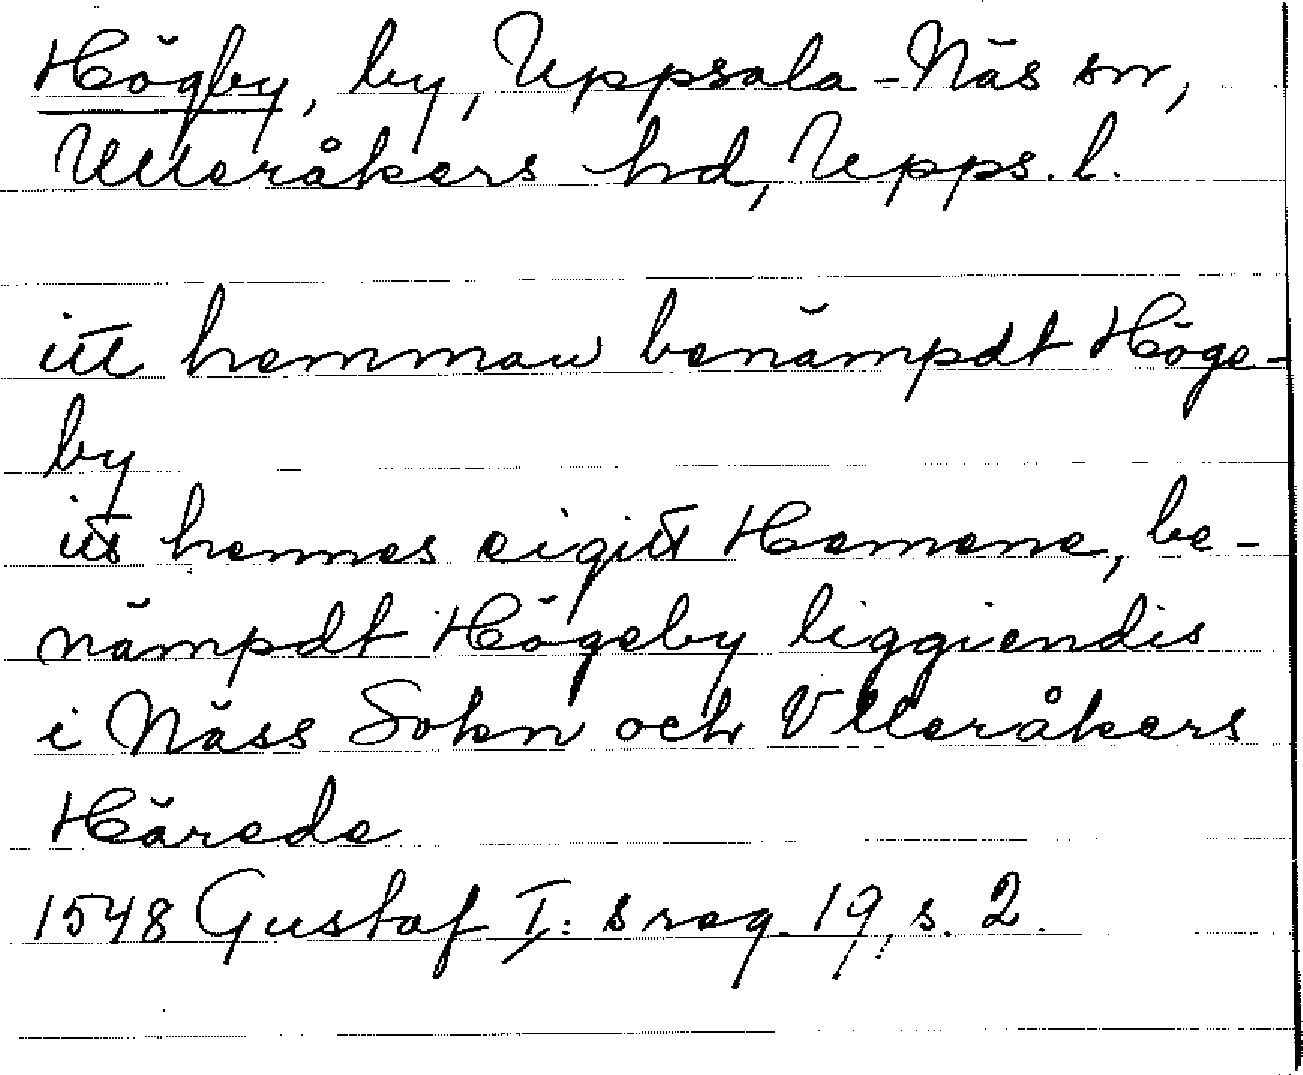 Högby, by, Uppsala-Näs sn,
Ulleråkers hd, Upps. l.
itt hemman benämpdt Höge-
by
itt hennes eigitt Hemene, be-
nämpdt Högeby liggiendis
i Näss Sokn och Vlleråkers
Härede
1548 Gustaf I:s reg. 19, s. 2.